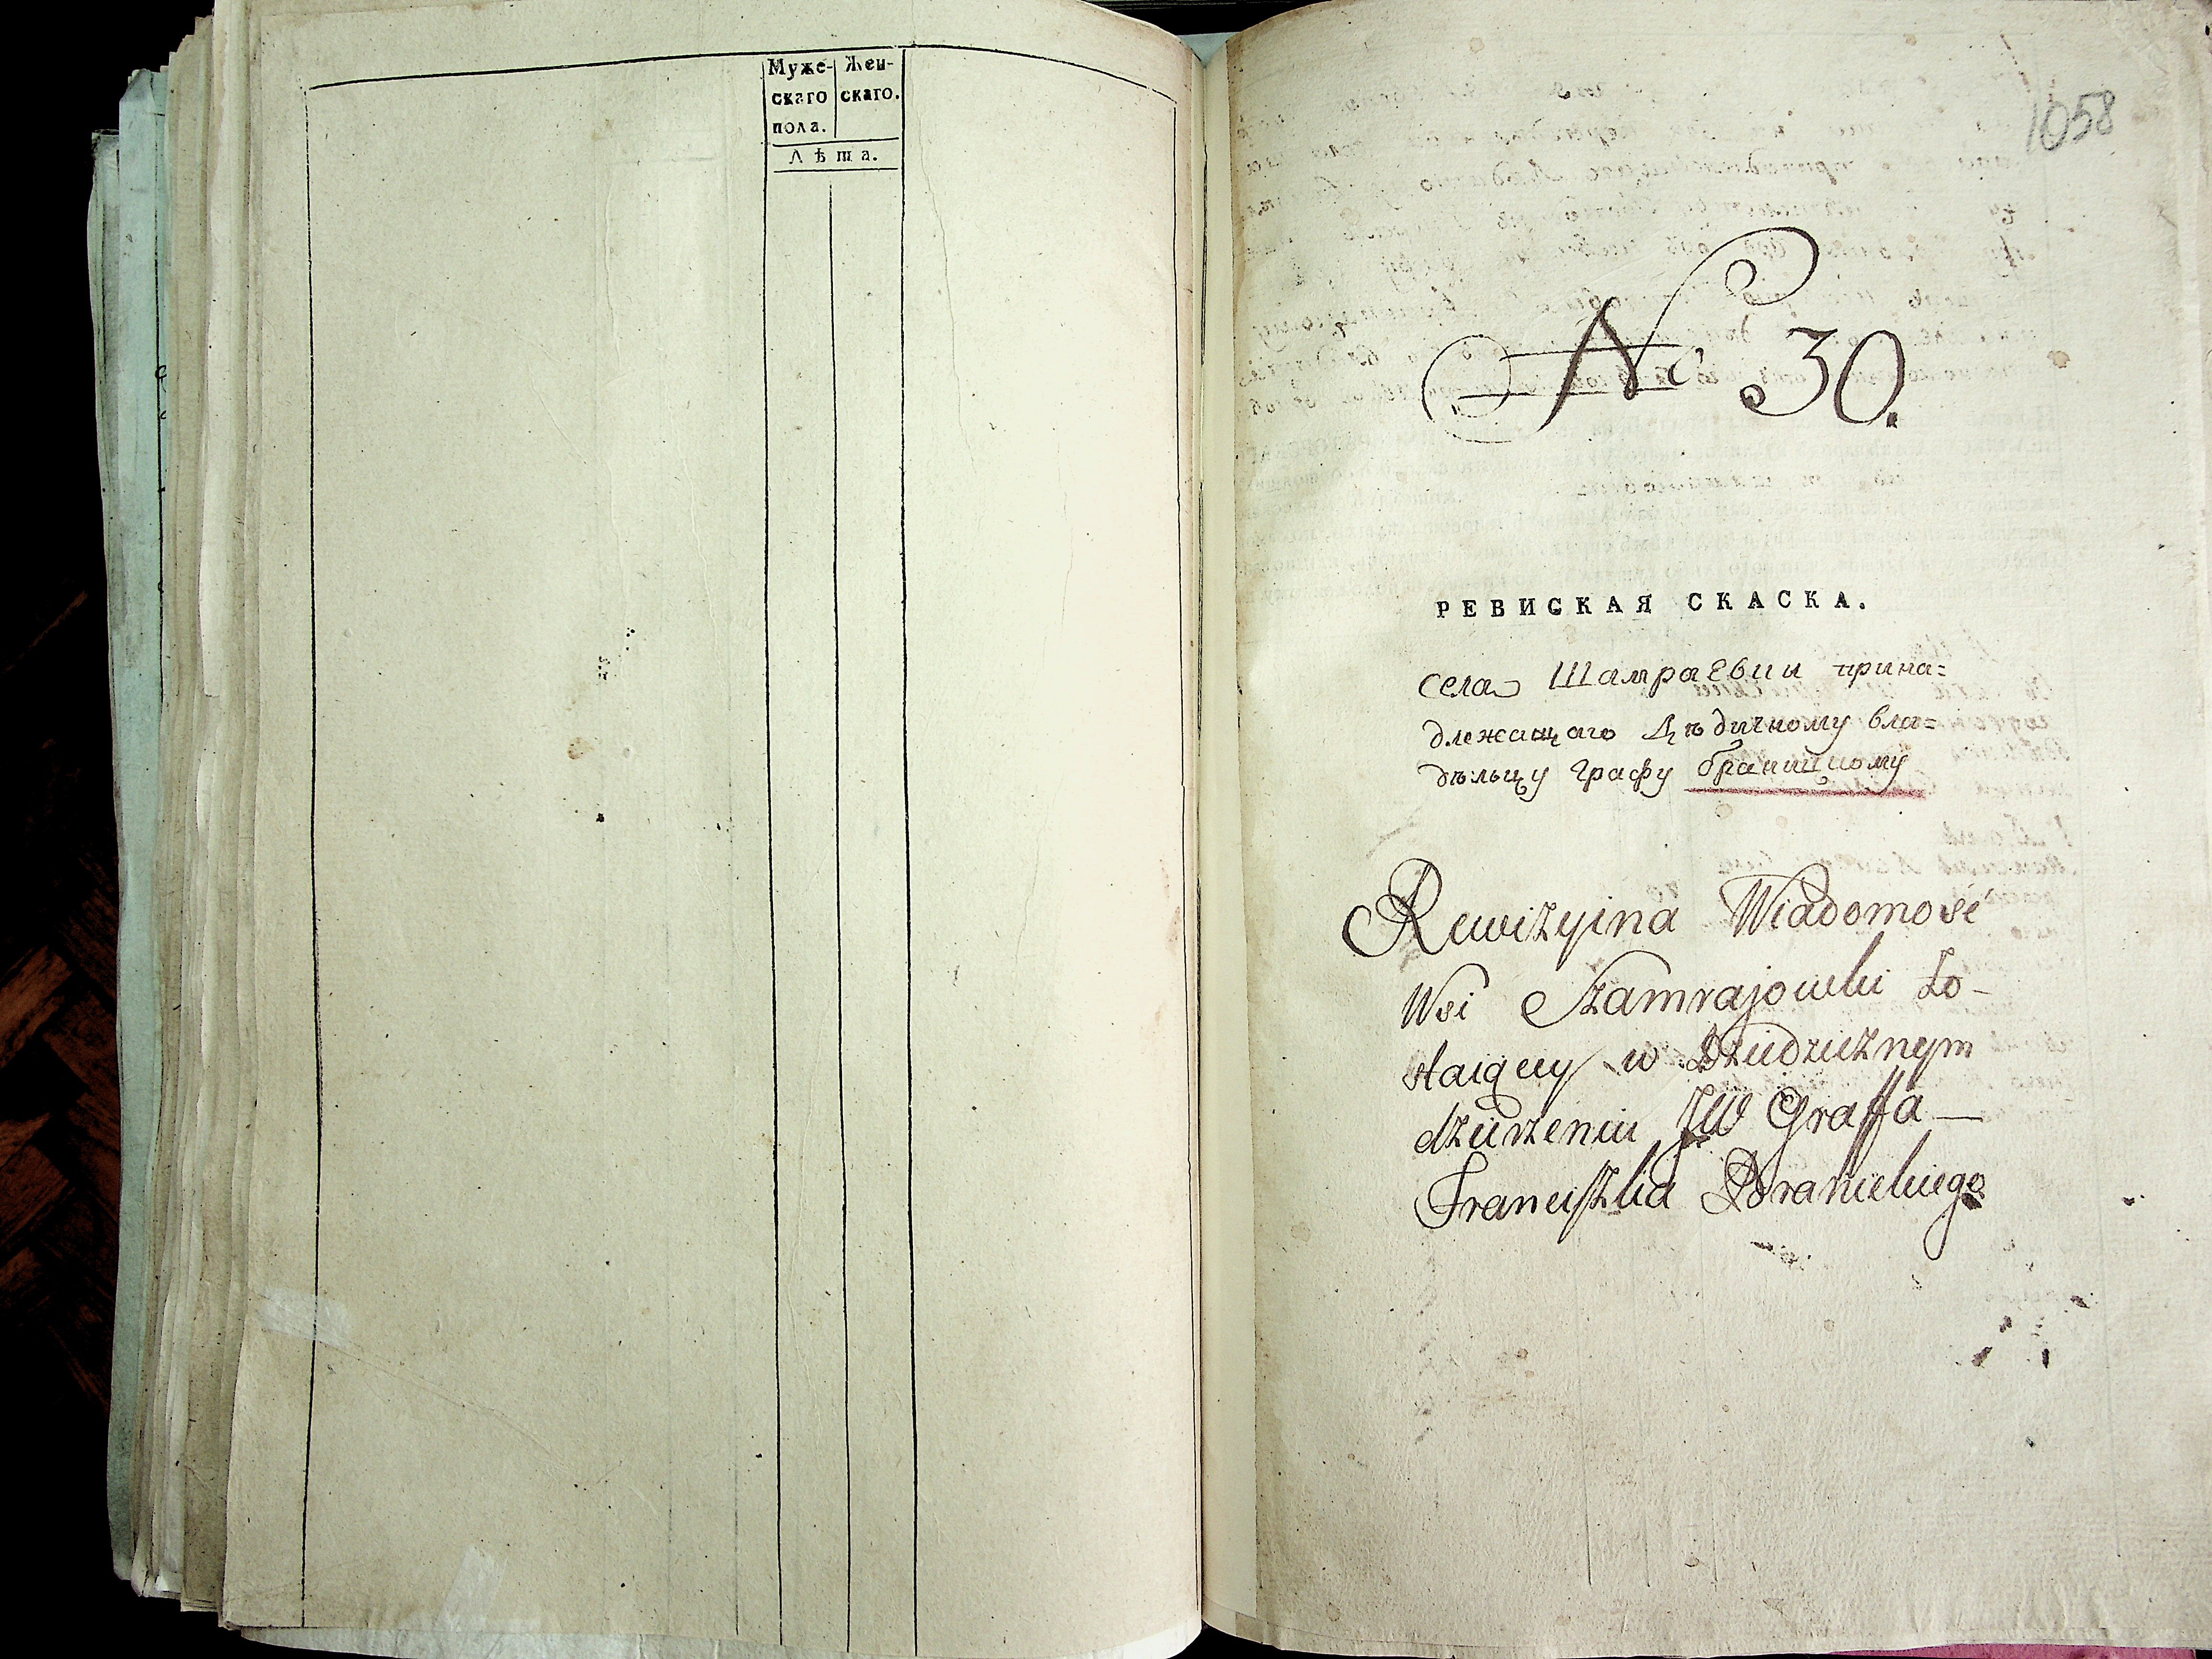 Муже- Жен-
скаго скаго.
пола.
Лѣта.
1058
№ 30.
РЕВИСКАЯ СКАСКА.
села Шамраевки прина=
длежащаго Дѣдичному вла=
дѣльцу Графу браницкому
Rewizyina Wiadomość
Wsi Szamrajowki Zo-
staiącey w Dziedzicznym
dzierżeniu JW Graffa —
Franciszka Branickiego